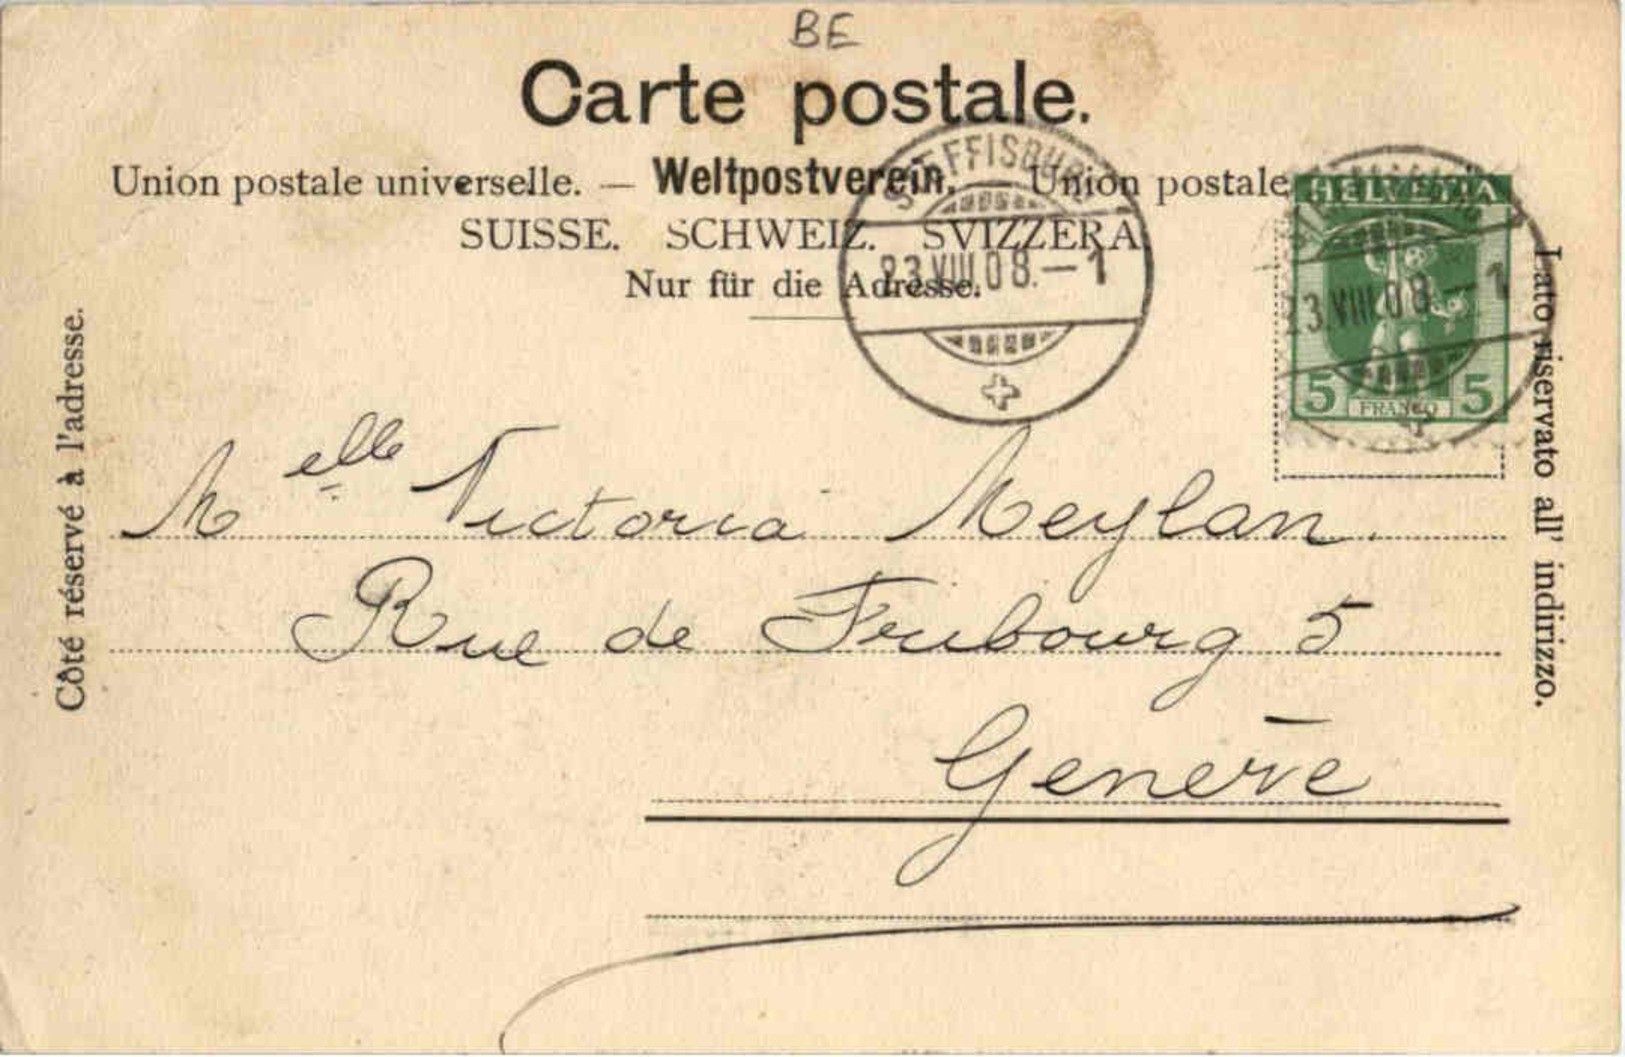 BE
Carte postale.
Union postale universelle. — Weltpostverein. — Union postale
SUISSE. SCHWEIZ. SVIZZERA.
Nur für die Adresse.
STEFFISBURG
23.VIII.08.–1
HELVETIA
23.VIII.08.–1
5 FRANCO 5
Côté réservé à l'adresse.
Lato riservato all' indirizzo.
Melle Victoria Meylan.
Rue de Fribourg 5
Genève